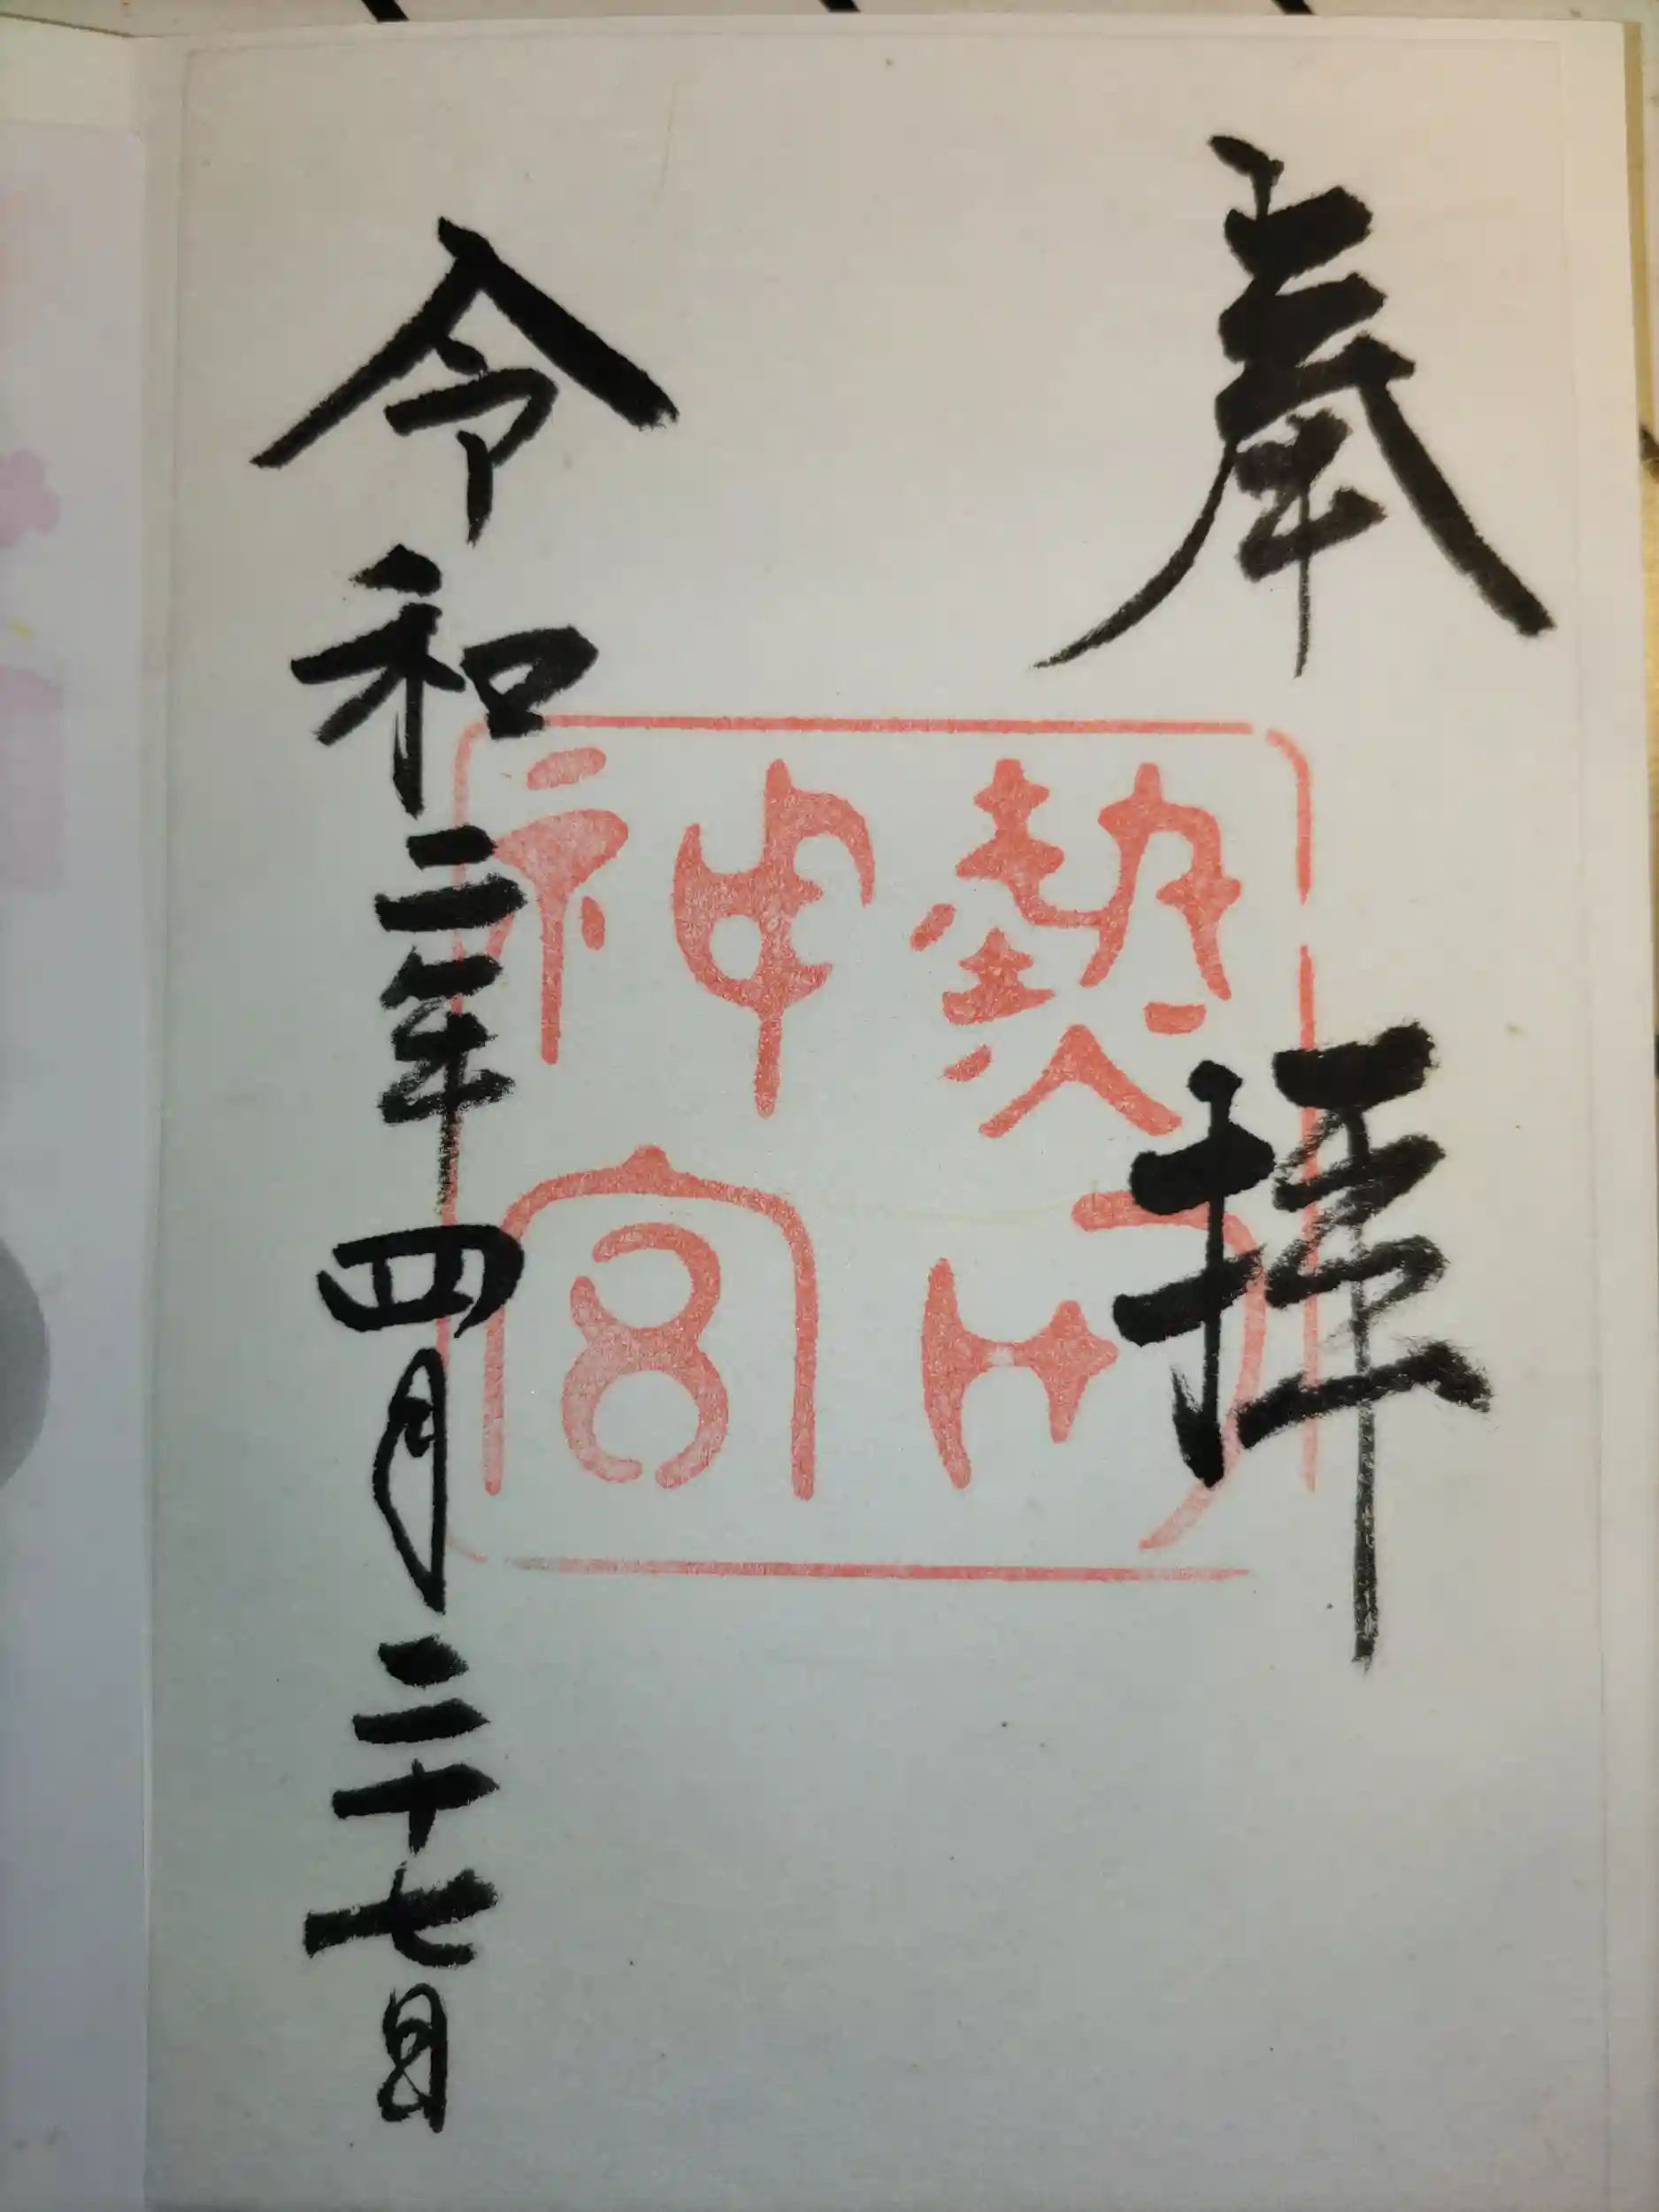 奉拝
熱田神宮
令和二年四月二十七日